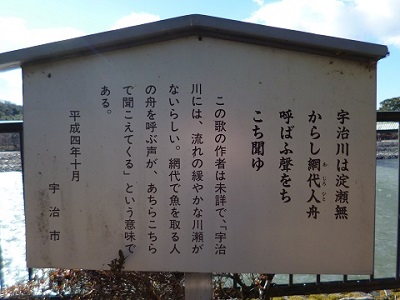 宇治川は淀瀬無
からし網代人舟
呼ばふ聲をち
こち聞ゆ
この歌の作者は未詳で、「宇治
川には、流れの緩やかな川瀬が
ないらしい。網代で魚を取る人
の舟を呼ぶ声が、あちらこちら
で聞こえてくる」という意味で
ある。
平成四年十月
宇治市